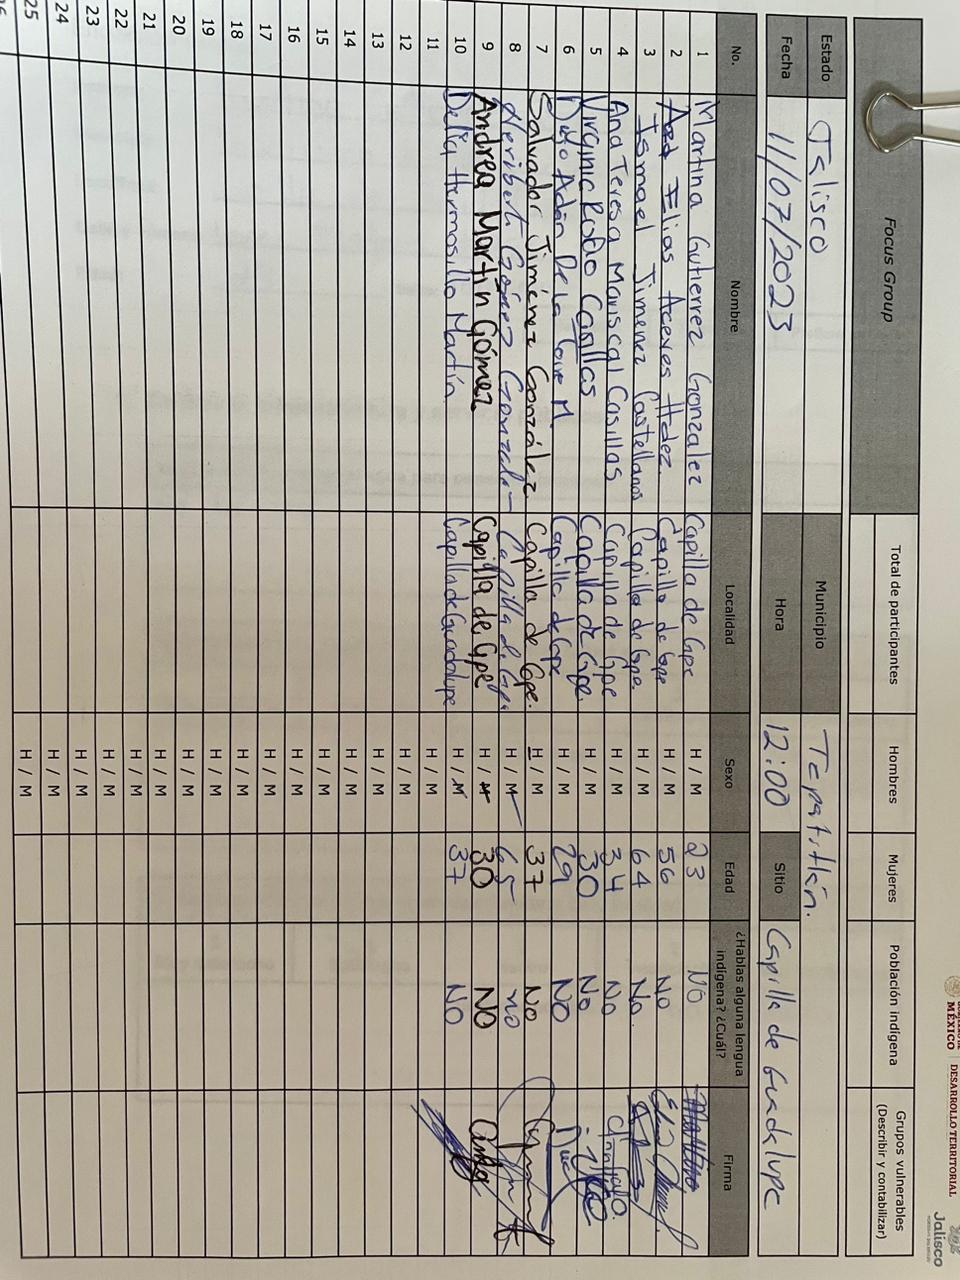 MÉXICO | DESARROLLO TERRITORIAL
Jalisco
Focus Group
Total de participantes Hombres Mujeres Población indígena Grupos vulnerables (Describir y contabilizar)
Estado Jalisco Municipio Tepatitlán.
Fecha 11/07/2023 Hora 12:00 Sitio Capilla de Guadalupe
No. Nombre Localidad Sexo Edad ¿Hablas alguna lengua indígena? ¿Cuál? Firma
1 Martina Gutierrez Gonzalez Capilla de Gpe H / M 23 No
2 Elias Aceves Hdez. Capilla de Gpe H / M 56 No
3 Ismael Jimenez Castellanos Capilla de Gpe. H / M 64 No.
4 Ana Teresa Mariscal Casillas Capilla de Gpe H / M 34 No
5 Casillas Capilla de Gpe. H / M 30 No
6 Adán De la M Capilla de Gpe H / M 29 NO
7 Salvador Jiménez González Capilla de Gpe. H / M 37 No
8 Gómez H / M 65 no
9 Andrea Martín Gómez Capilla de Gpe H / M 30 NO
10 Delia Hermosillo Martín Capilla de Guadalupe H / M 37 NO
11 H / M
12 H / M
13 H / M
14 H / M
15 H / M
16 H / M
17 H / M
18 H / M
19 H / M
20 H / M
21 H / M
22 H / M
23 H / M
24 H / M
25 H / M